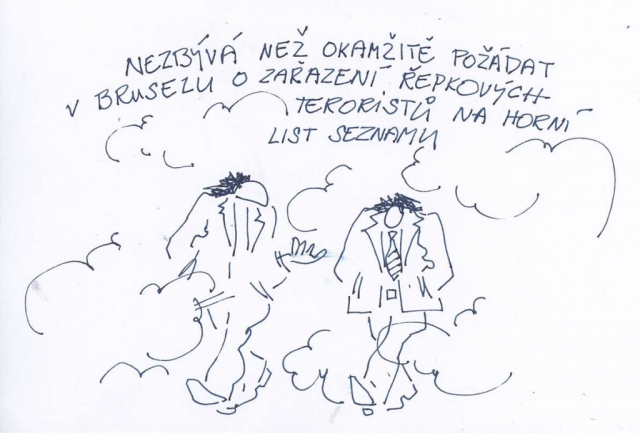 NEZBÝVÁ NEŽ OKAMŽITĚ POŽÁDAT
V BRUSELU O ZAŘAZENÍ ŘEPKOVÝCH
TERORISTŮ NA HORNÍ
LIST SEZNAMU